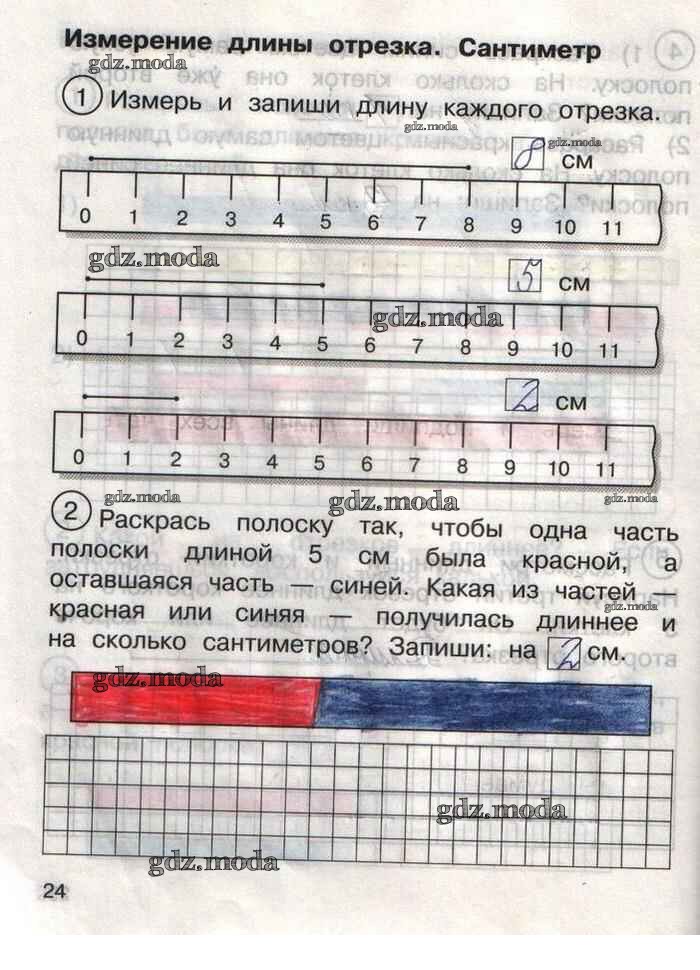 Измерение длины отрезка. Сантиметр
gdz.moda
1 Измерь и запиши длину каждого отрезка.
gdz.moda
gdz.moda
8 см
0 1 2 3 4 5 6 7 8 9 10 11
gdz.moda
5 см
gdz.moda
0 1 2 3 4 5 6 7 8 9 10 11
2 см
0 1 2 3 4 5 6 7 8 9 10 11
gdz.moda
gdz.moda
gdz.moda
2 Раскрась полоску так, чтобы одна часть
полоски длиной 5 см была красной, а
оставшаяся часть — синей. Какая из частей —
gdz.moda
красная или синяя — получилась длиннее и
на сколько сантиметров? Запиши: на 2 см.
gdz.moda
gdz.moda
gdz.moda
24